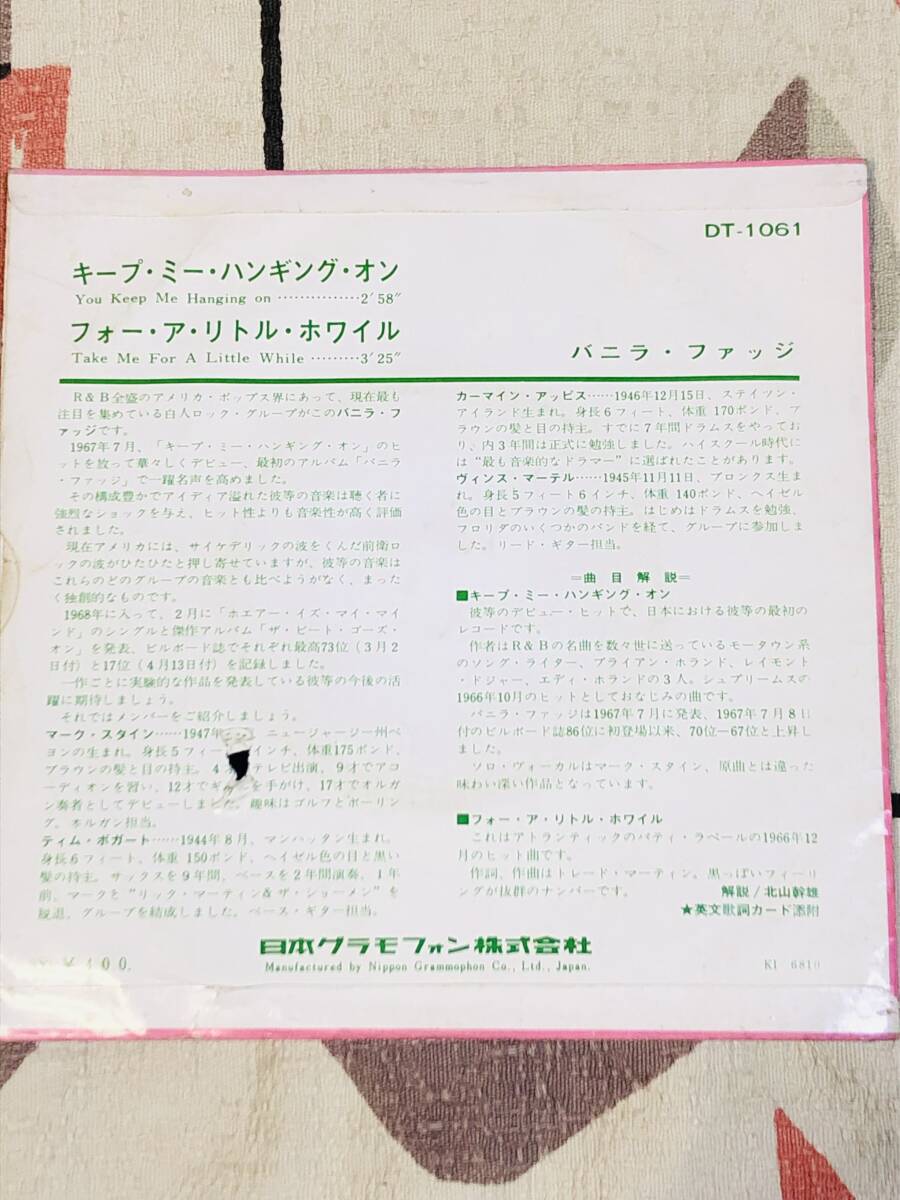 DT-1061
キープ・ミー・ハンギング・オン
You Keep Me Hanging on ……………2′58″
フォー・ア・リトル・ホワイル
Take Me For A Little While ………3′25″
バニラ・ファッジ
R&B全盛のアメリカ・ポップス界にあって、現在最も
注目を集めている白人ロック・グループがこのバニラ・フ
ァッジです。
1967年7月、「キープ・ミー・ハンギング・オン」のヒ
ットを放って華々しくデビュー、最初のアルバム「バニラ
・ファッジ」で一躍名声を高めました。
その構成豊かでアイディア溢れた彼等の音楽は聴く者に
強烈なショックを与え、ヒット性よりも音楽性が高く評価
されました。
現在アメリカには、サイケデリックの波をくんだ前衛ロ
ックの波がひたひたと押し寄せていますが、彼等の音楽は
これらのどのグループの音楽とも比べようがなく、まった
く独創的なものです。
1968年に入って、2月に「ホエアー・イズ・マイ・マイ
ンド」のシングルと傑作アルバム「ザ・ビート・ゴーズ・
オン」を発表、ビルボード誌でそれぞれ最高73位(3月2
日付)と17位(4月13日付)を記録しました。
一作ごとに実験的な作品を発表している彼等の今後の活
躍に期待しましょう。
それではメンバーをご紹介しましょう。
マーク・スタイン……1947年 ニュージャージー州ベ
ヨンの生まれ。身長5フィー インチ、体重175ポンド、
ブラウンの髪と目の持主。4 テレビ出演、9才でアコ
ーディオンを習い、12才でギ を手がけ、17才でオルガ
ン奏者としてデビューしました。趣味はゴルフとボーリン
グ。オルガン担当。
ティム・ボガート……1944年8月、マンハッタン生まれ。
身長6フィート、体重150ポンド、ヘイゼル色の目と黒い
髪の持主。サックスを9年間、ベースを2年間演奏、1年
前、マークと“リック・マーティン&ザ・ショーメン”を
脱退、グループを結成しました。ベース・ギター担当。
カーマイン・アッピス……1946年12月15日、ステイツン・
アイランド生まれ。身長6フィート、体重170ポンド、ブ
ラウンの髪と目の持主。すでに7年間ドラムスをやってお
り、内3年間は正式に勉強しました。ハイスクール時代に
は“最も音楽的なドラマー”に選ばれたことがあります。
ヴィンス・マーテル……1945年11月11日、ブロンクス生ま
れ。身長5フィート6インチ、体重140ポンド、ヘイゼル
色の目とブラウンの髪の持主。はじめはドラムスを勉強、
フロリダのいくつかのバンドを経て、グループに参加しま
した。リード・ギター担当。
=曲目解説=
■キープ・ミー・ハンギング・オン
彼等のデビュー・ヒットで、日本における彼等の最初の
レコードです。
作者はR&Bの名曲を数々世に送っているモータウン系
のソング・ライター、ブライアン・ホランド、レイモント
・ドジャー、エディ・ホランドの3人。シュブリームスの
1966年10月のヒットとしておなじみの曲です。
バニラ・ファッジは1967年7月に発表、1967年7月8日
付のビルボード誌86位に初登場以来、70位―67位と上昇し
ました。
ソロ・ヴォーカルはマーク・スタイン、原曲とは違った
味わい深い作品となっています。
■フォー・ア・リトル・ホワイル
これはアトランティックのパティ・ラベールの1966年12
月のヒット曲です。
作詞、作曲はトレード・マーティン。黒っぽいフィーリ
ングが抜群のナンバーです。 解説/北山幹雄
★英文歌詞カード添附
日本グラモフォン株式会社
Manufactured by Nippon Grammophon Co., Ltd., Japan.
¥400.
KI 6810